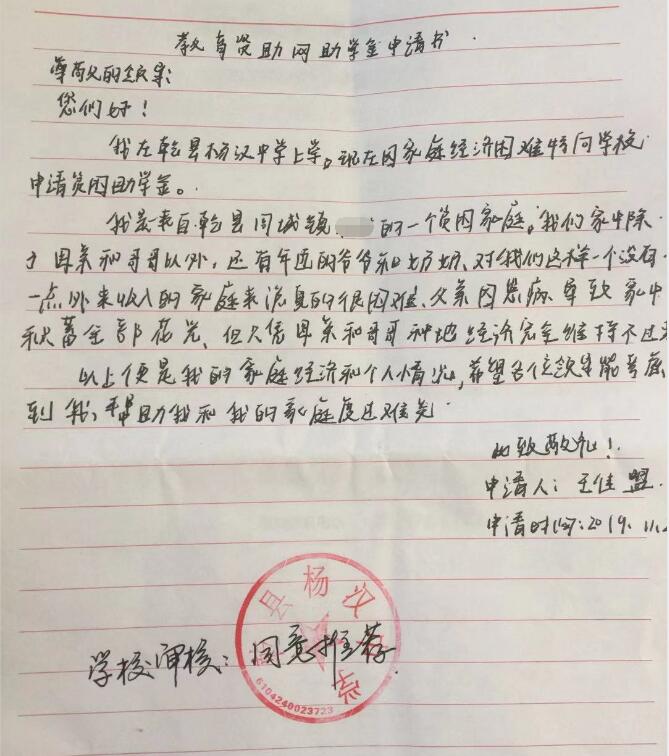 教育资助网助学金申请书.
尊敬的领导:
您们好!
我在乾县杨汉中学上学。现在因家庭经济困难特向学校
申请贫困助学金。
我是来自乾县周城镇 的一个贫困家庭,我们家中除
了母亲和哥哥以外,还有年迈的爷爷和奶奶、对我们这样一个没有
一点外来收入的家庭来说真的很困难、父亲因患病、导致家中
积蓄全部花光、但只凭母亲和哥哥种地经济完全维持不过来
以上便是我的家庭经济和个人情况,希望各位领导能考虑
到我,帮助我和我的家庭度过难关.
此致敬礼!
申请人:王佳盟.
申请时间:2019.11.
学校审核:同意推荐.
县杨汉中学
6104240023723